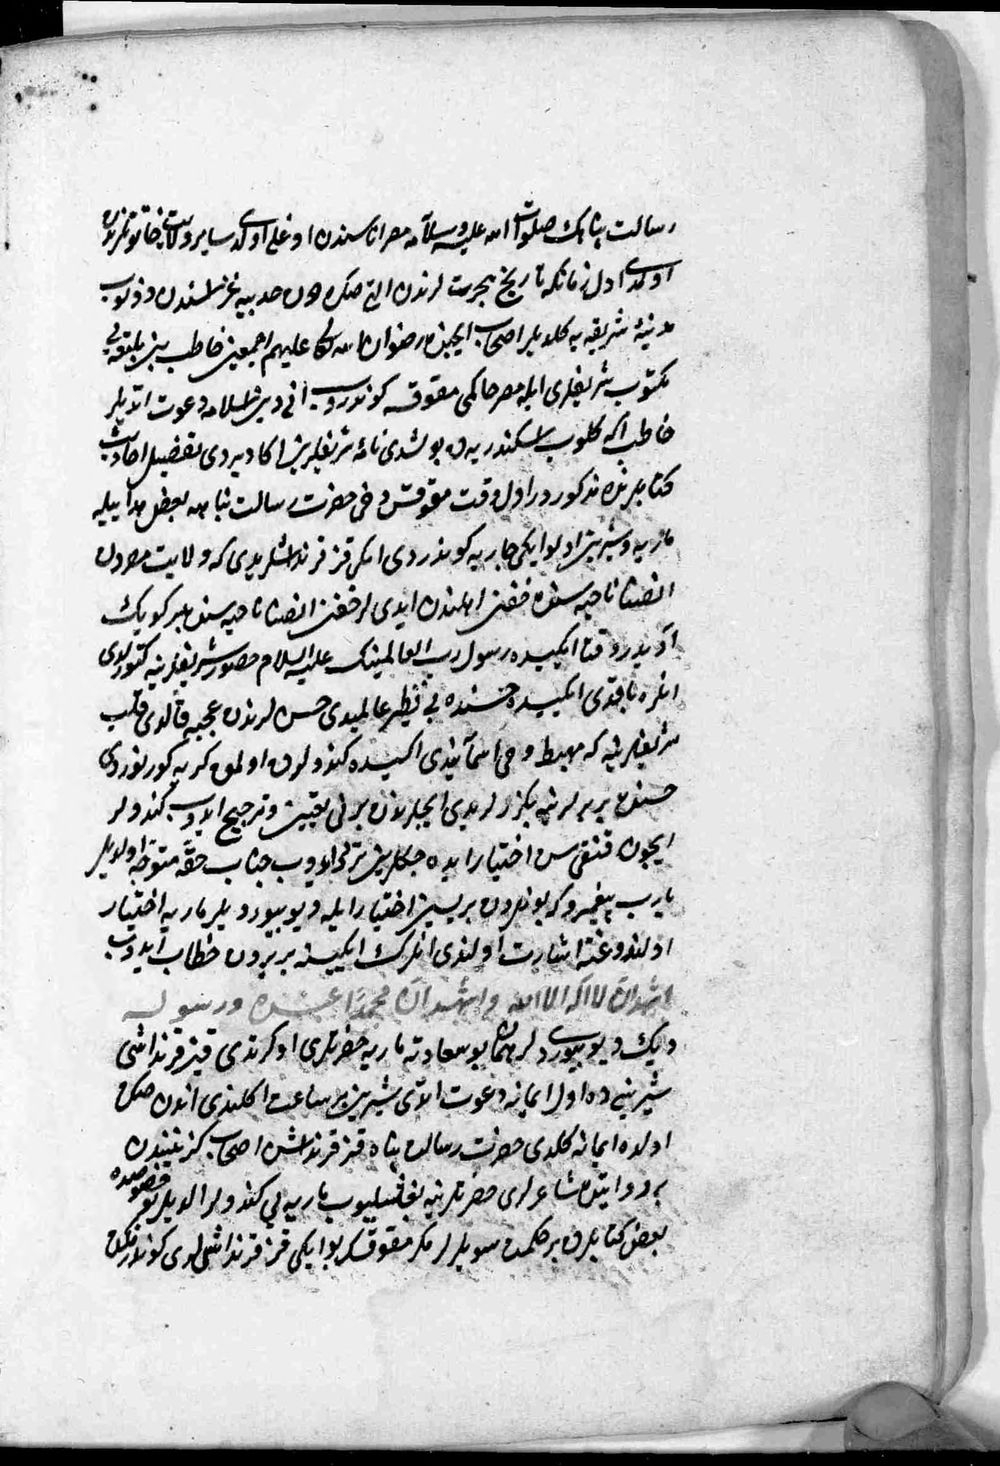 رسالت پناهك صلوات الله عليه وسلامه مصر اناسندن اوغلى اولدى سائر ولايت خاتونلرندن
اولمدى اول زمانكه تاريخ هجرت لرندن التى صكره حديبيه غزاسندن دونوب
مدينۀ شريفه يه كلديلر اصحاب ايچندن رضوان الله تعالى عليهم اجمعين خاطب بن بلتعه يى
مكتوب شريفلرى ايله مصر حاكمى مقوقسه كوندروب انى دين اسلامه دعوت اتديلر
خاطب اكه كلوب اسكندريه ده بولشدى نامۀ شريفلرين اكا ديردى تفضيل احاديث
كتابلرنده مذكوردر اول وقت مقوقس دخى حضرت رسالت پناهه بعض هدايا ايله
ماريه و شيرين ادلو ايكى جاريه كوندردى ايكى قز قرنداشلريدى كه ولايت مصردن
انصنا ناحيه سنده حفن اهلندن ايدى لر حفن انصنا ناحيه سنده بر كويك
آديدر وقتا ايكيسيده رسول رب العالمينك عليه السلام حضور شريفلرينه كتورلدى
انلره باقدى ايكيسيده حسنده بى نظير عالميدى حسن لرندن عجبه قالدى قلب
شريفلرينه كه مهبط وحى اسمآنيدى ايكيسيده كندولرك اولمق كريه كورنوردى
حسنده بر برلرينه بكزرلريدى ايچلرندن برنى تعيين و ترجيح ايدوب كندولر
ايچون قنقى سن اختيار ايده جكلرين ترك ايدوب جناب حقه متوجه اولديلر
يارب پيغمبروكه بونلردن بريسين اختيار ايله ديو بيورديلر ماريه اختيار
اولندوغنه اشارت اولندى انلرك ايكيسنه بر بردن خطاب ايدوب
اشهد ان لا اله الا الله و اشهد ان محمدا عبده ورسوله
ديك ديو بيورديلر همان بو سعادته ماريه حضرتلرى اوكرندى قيز قرنداشى
شيرينى ده اول ايمانه دعوت اتدى شيرين بر ساعت اكلندى اندن صكره
اولده ايمانه كلدى حضرت رسالت پناه قز قرنداشن اصحاب كزينندن
بر روايتده شاعرلرى حضرتلرينه بغشليوب ماريه يى كندولر الديلر بو خصوصده
بعض كتابلرده بر حكمت سويلرلر مكر مقوقس بو ايكى قز قرنداشلرى كوندرمكدن